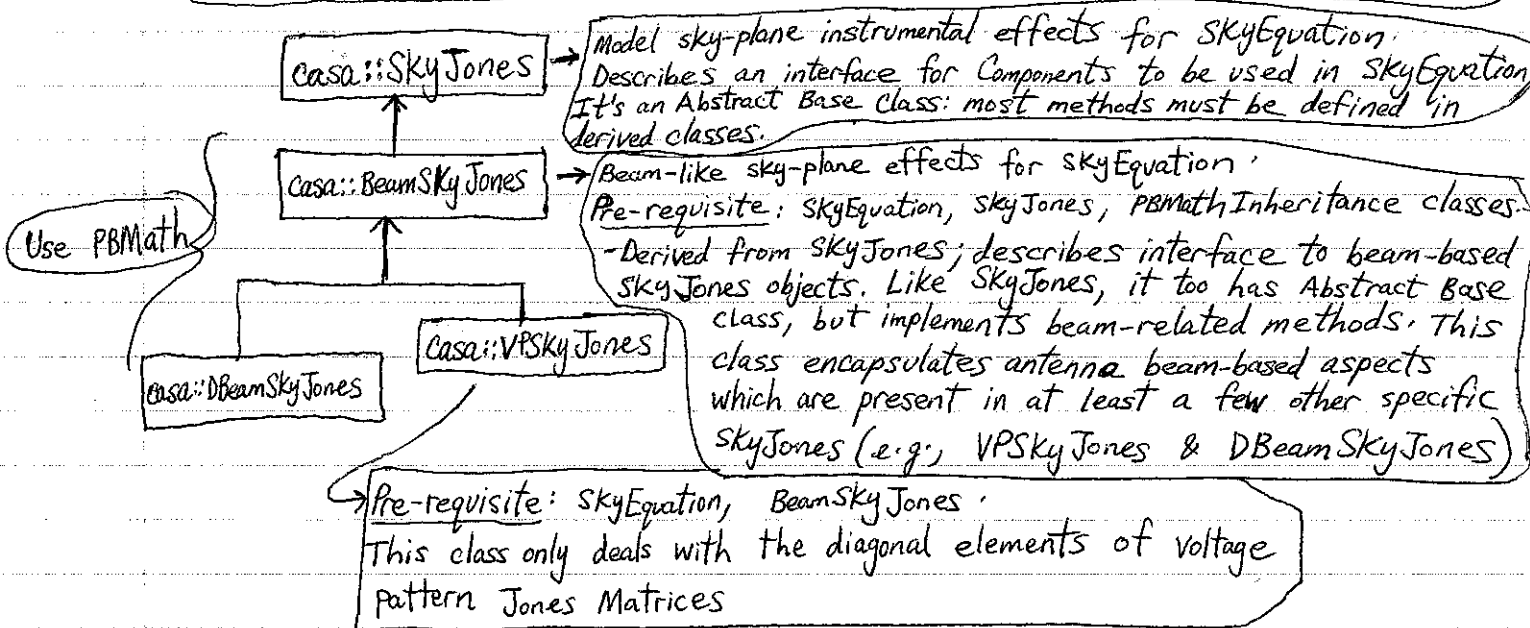 casa::SkyJones
Model sky-plane instrumental effects for SkyEquation.
Describes an interface for Components to be used in SkyEquation
It's an Abstract Base Class: most methods must be defined in
derived classes.
casa::BeamSkyJones
Beam-like sky-plane effects for SkyEquation.
Pre-requisite: SkyEquation, SkyJones, PBMathInheritance classes.
-Derived from SkyJones; describes interface to beam-based
SkyJones objects. Like SkyJones, it too has Abstract Base
class, but implements beam-related methods. This
class encapsulates antenna beam-based aspects
which are present in at least a few other specific
SkyJones (e.g., VPSkyJones & DBeamSkyJones)
Use PBMath
casa::DBeamSkyJones
casa::VPSkyJones
Pre-requisite: SkyEquation, BeamSkyJones.
This class only deals with the diagonal elements of voltage
pattern Jones Matrices